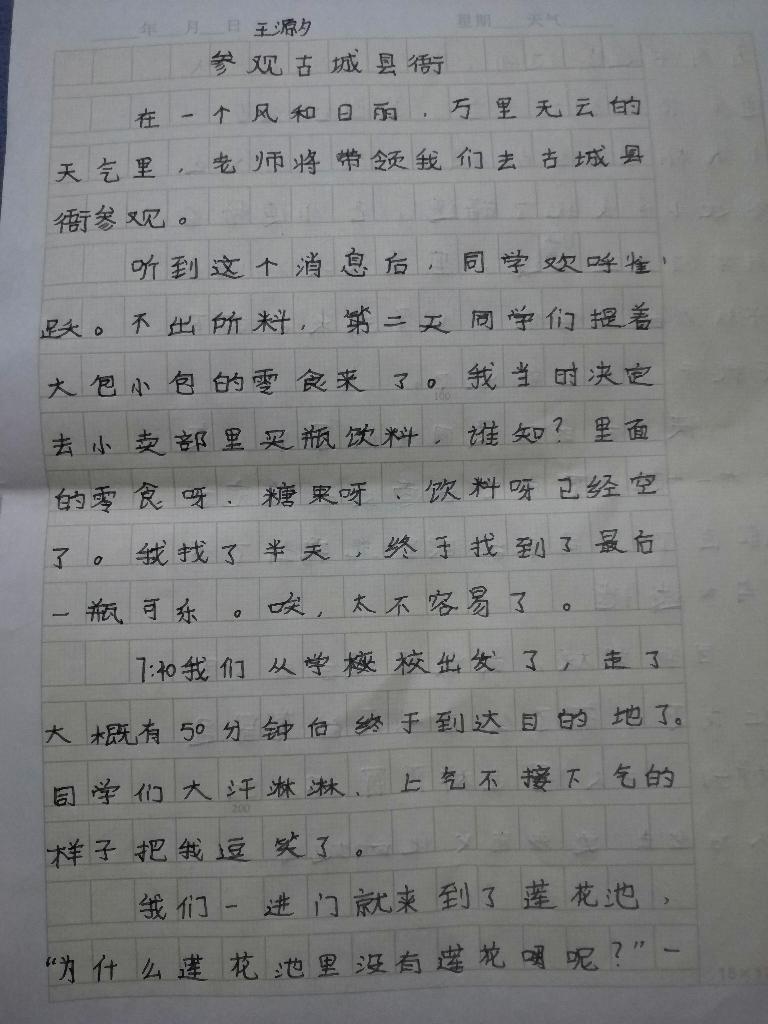 年 月 日 王源夕 星期 天气
参观古城县衙
在一个风和日丽，万里无云的
天气里，老师将带领我们去古城县
衙参观。
听到这个消息后，同学欢呼雀
跃。不出所料，第二天同学们提着
大包小包的零食来了。我当时决定
去小卖部里买瓶饮料，谁知？里面
的零食呀、糖果呀、饮料呀已经空
了。我找了半天，终于找到了最后
一瓶可乐。唉，太不容易了。
7:40我们从学校出发了，走了
大概有50分钟后终于到达目的地了。
同学们大汗淋淋、上气不接下气的
样子把我逗笑了。
我们一进门就来到了莲花池，
“为什么莲花池里没有莲花呢？”一